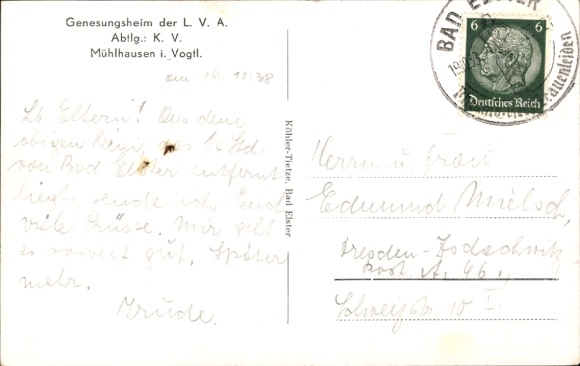 Genesungsheim der L. V. A.
Abtlg.: K. V.
Mühlhausen i. Vogtl.
am 12.38
Lb. Eltern! Aus dem
obigen Heim, das ½ Std.
von Bad Elster entfernt
liegt, sende ich Euch
viele Grüsse. Mir geht
es soweit gut. Später
mehr.
Trude.
Köhler-Tietze, Bad Elster
BAD ELSTER
6 6
Deutsches Reich
Frauenleiden
Herrn u. Frau
Edmund Mielsch,
Dresden-
Post A. 46.,
10 I.